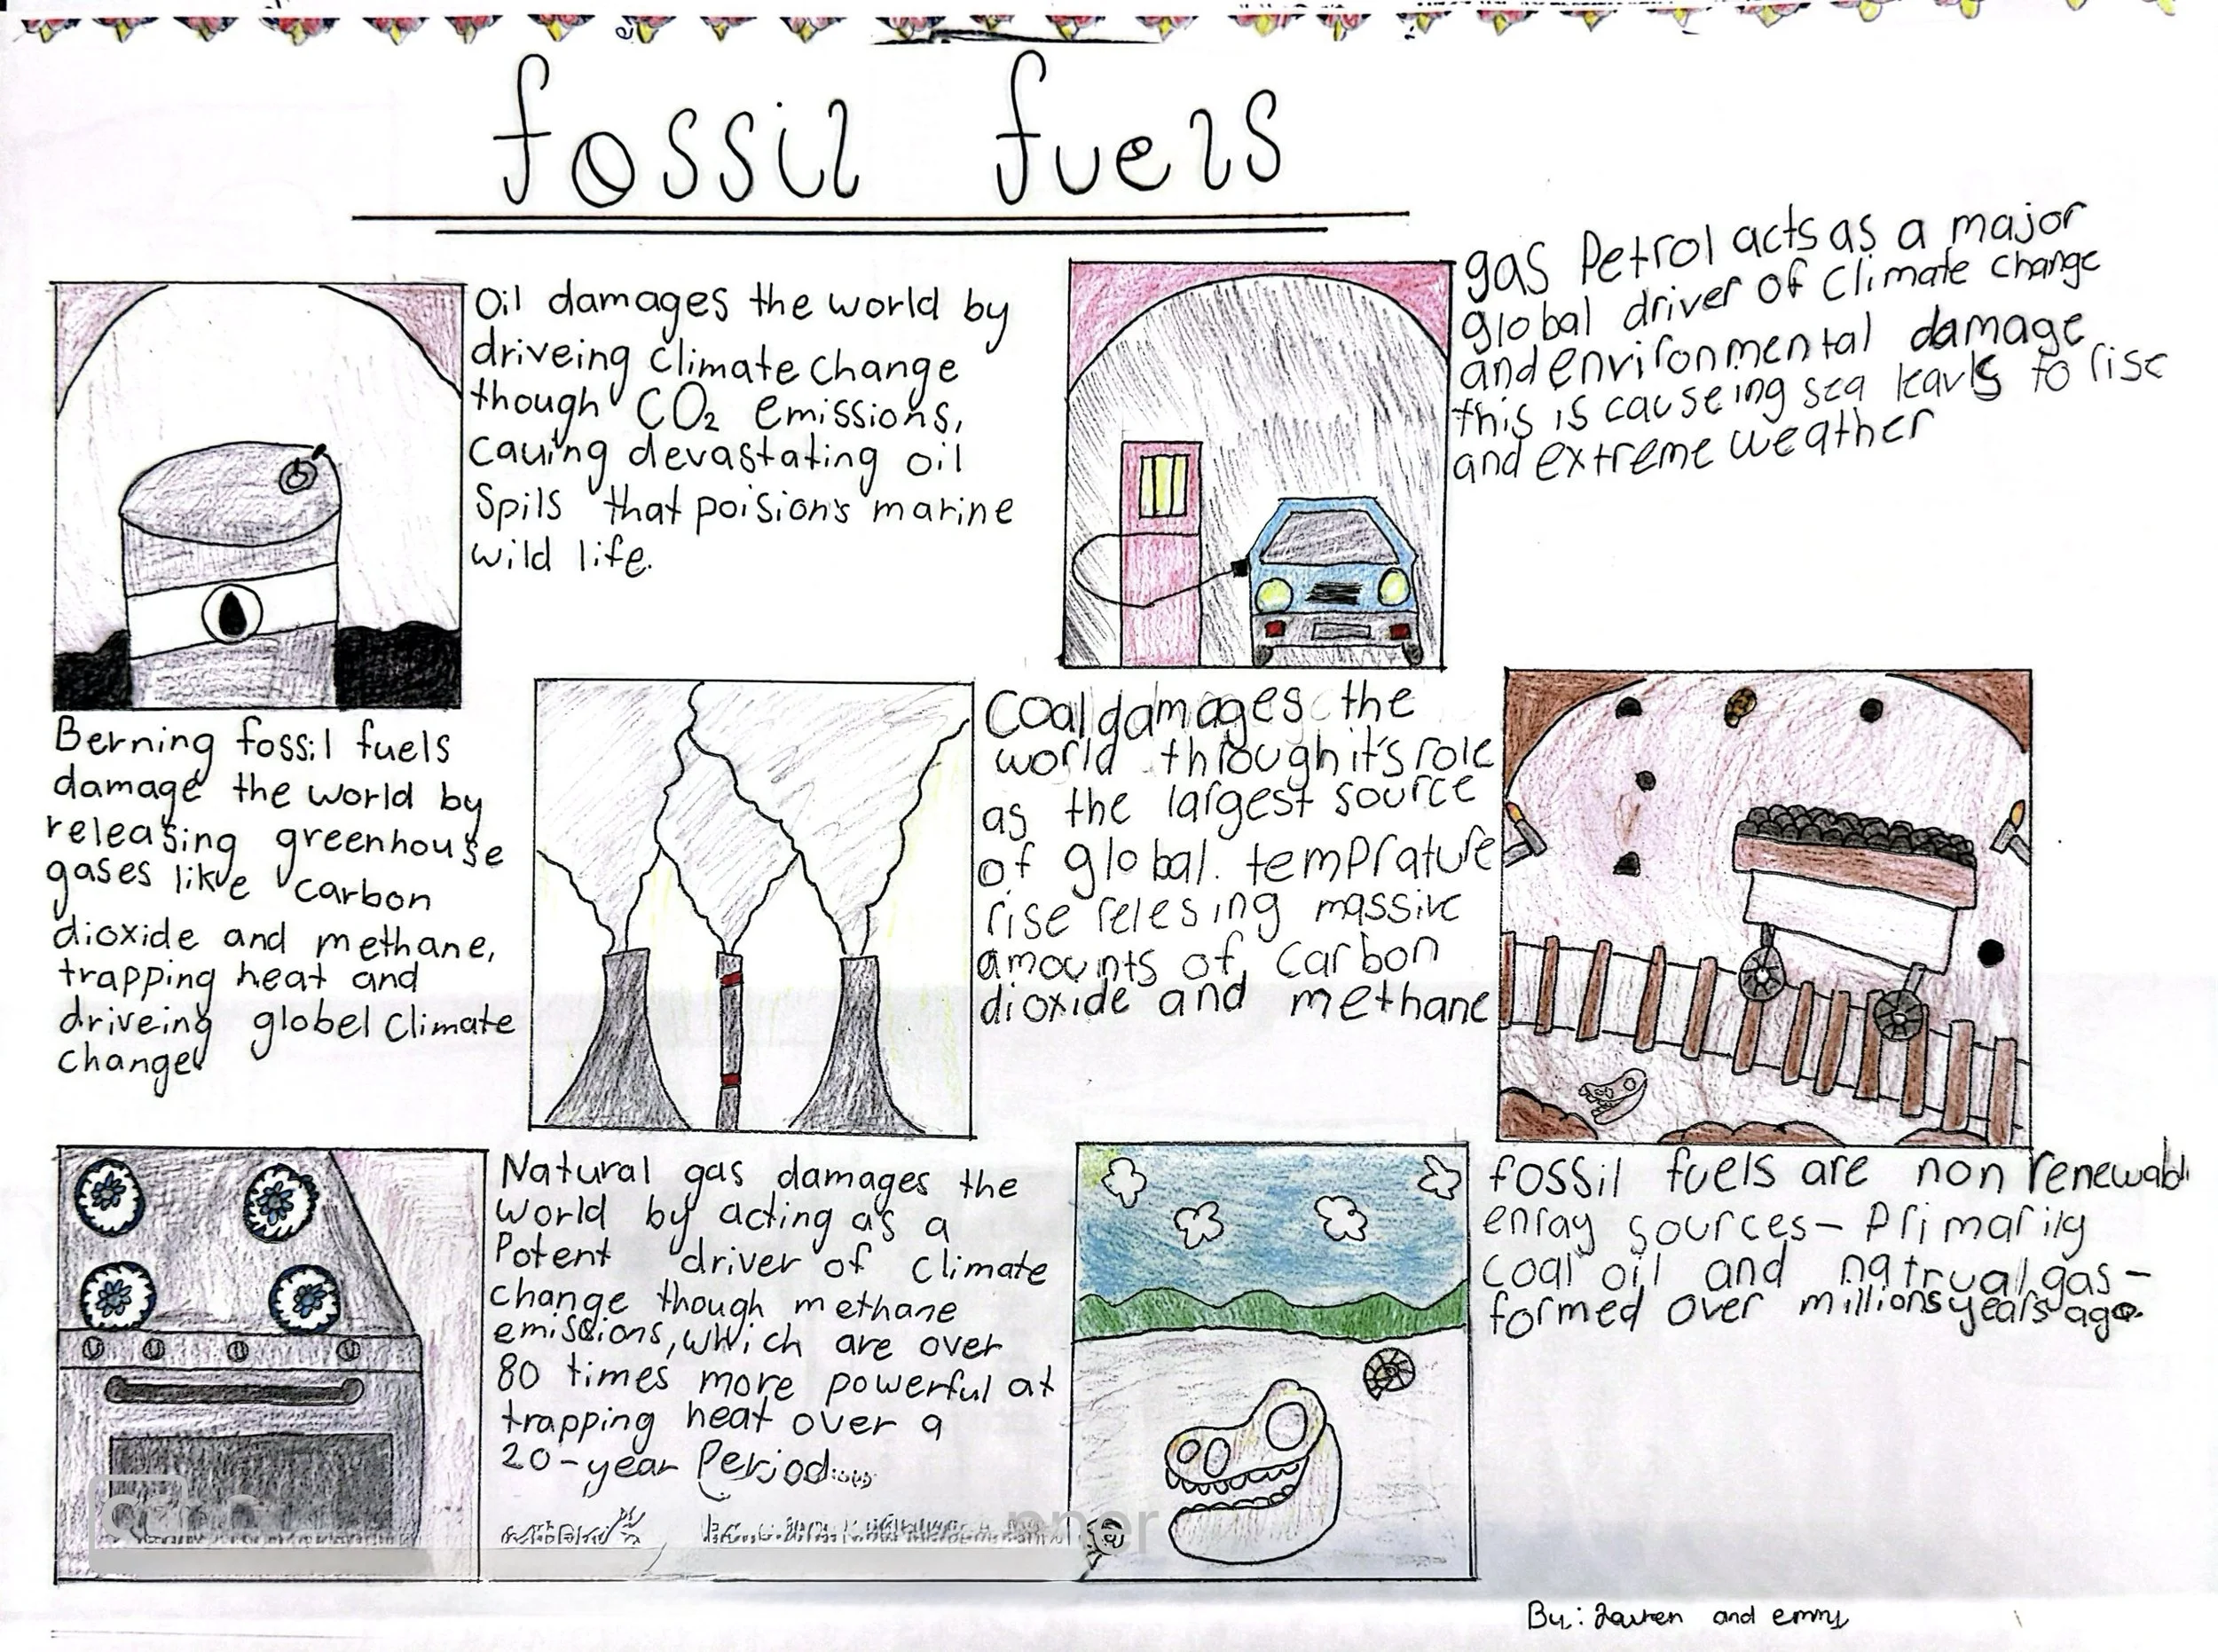 fossil fuels
Oil damages the world by
driveing climate change
though CO₂ emissions,
cauing devastating oil
spils that poision's marine
wild life.
gas Petrol acts as a major
global driver of climate change
and environmental damage
this is causeing sea leavls to rise
and extreme weather
Berning fossil fuels
damage the world by
releasing greenhouse
gases like carbon
dioxide and methane,
trapping heat and
driveing globel climate
change
Coal damages the
world through it's role
as the largest source
of global. temprature
rise relesing massive
amounts of carbon
dioxide and methane
Natural gas damages the
world by acting as a
Potent driver of climate
change though methane
emissions, which are over
80 times more powerful at
trapping heat over a
20-year Period...
fossil fuels are non renewabl
enray sources - Primarily
coal oil and natrual gas -
formed over millions years ago.
By: Lauren and emmy